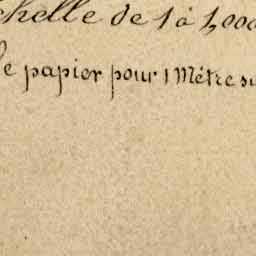 chelle de 1 à 1,000
le papier pour 1 Mètre su